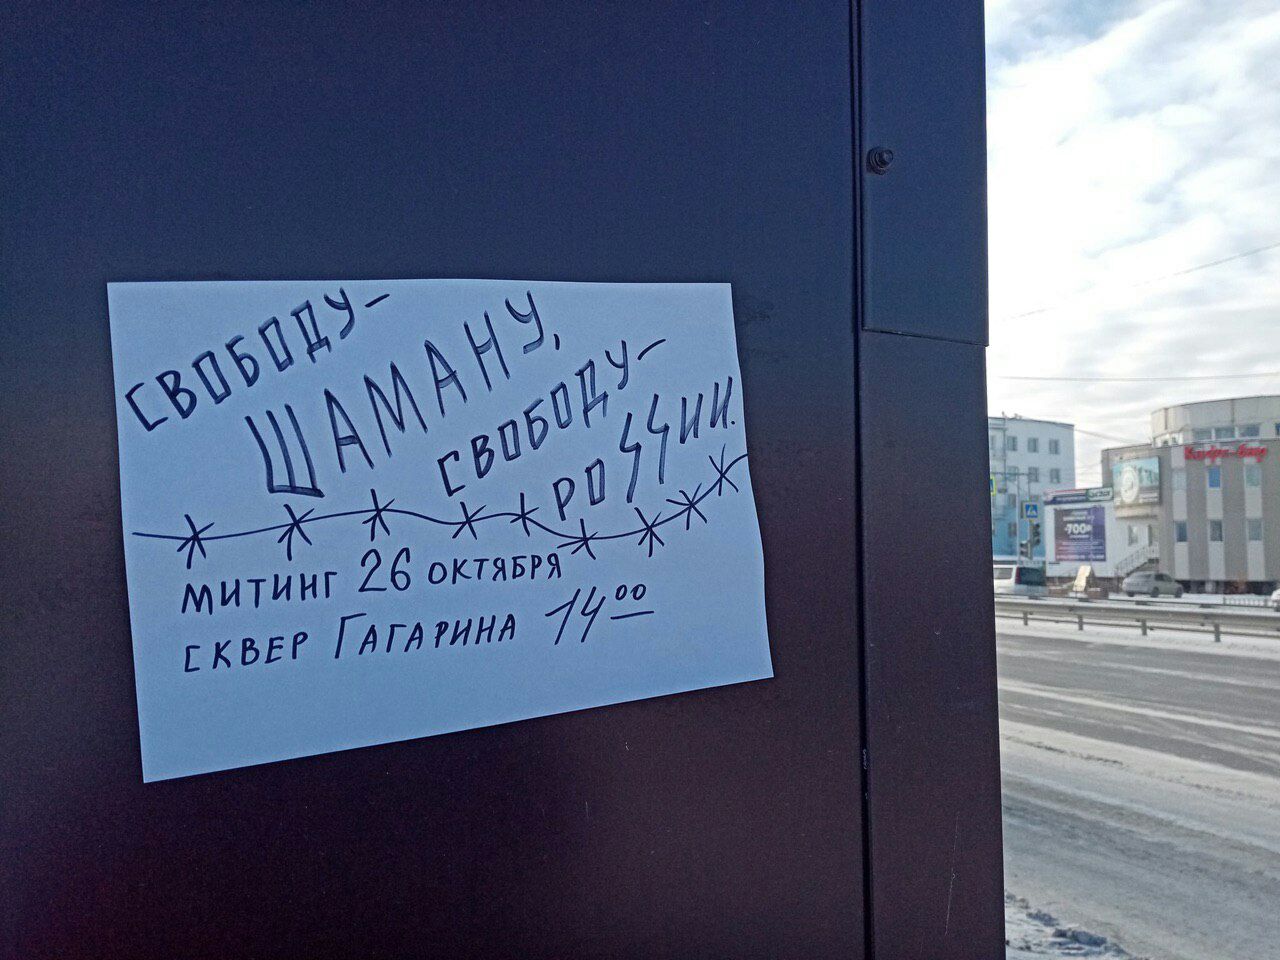 СВОБОДУ –
ШАМАНУ,
СВОБОДУ –
РОССИИ.
МИТИНГ 26 ОКТЯБРЯ
СКВЕР ГАГАРИНА 14⁰⁰
-700₽